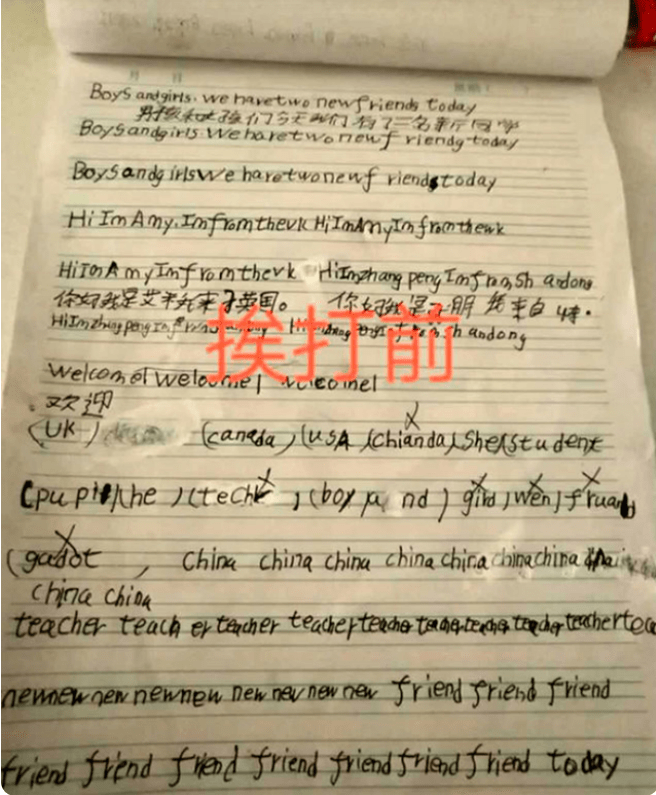 月 日
Boys andgirls. we havetwo newfriends today
男孩和女孩们今天我们有了二名新同学
Boysandgirls. We havetwo newf riendg today
BoysandgirlsWe havetwonewf riendstoday
Hi ImAmy. ImfromtheUk Hi, ImAmyImfromtheuk
HiImAmyImfromtheUk HiImzhangpengImfromSh andong
你好我是艾米我来于英国。 你好我是 朋 我来自
HiImzhangpengImf andong
welcome! welcome!
欢迎
挨打前
(UK) (canada) (USA (chianda) She(student
(pu pil (he ) (teche , (boy a nd ) gird ) wen ) fruand
(gadot , China china china china china chinachina
china china
teacher teach er teacher teacherteacher teacher teacher teacher teachertea
newnewnew newnew new new new new friend friend friend
friend friend friend friend friend friend friend today